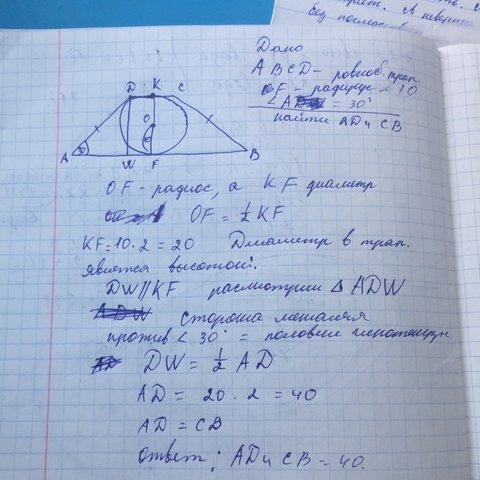 Дано
ABCD - равноб. трап.
OF - радиус = 10
∠A = 30°
найти AD и CB
D K C
O
10
30
A W F B
OF - радиос, а KF диаметр
OF = ½ KF
KF = 10 · 2 = 20 Диаметр в трап.
является высотой.
DW || KF расмотрим Δ ADW
сторона лежащая
против ∠ 30° = половине гипотенузы
DW = ½ AD
AD = 20 · 2 = 40
AD = CB
ответ: AD и CB = 40.